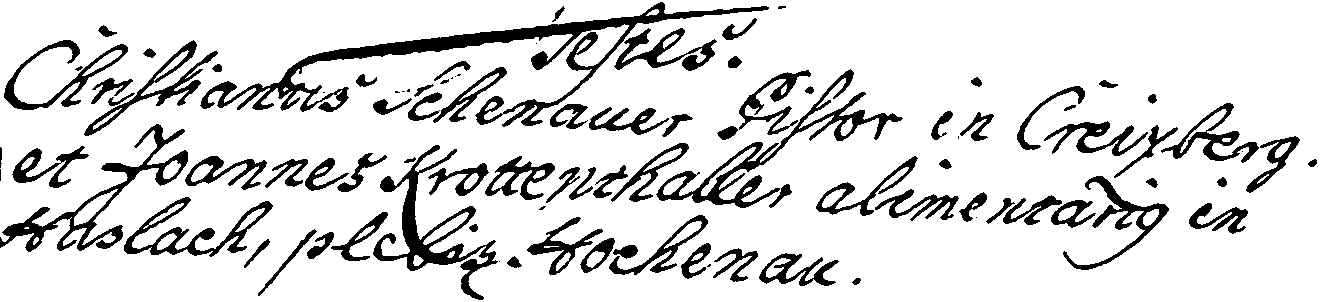 Testes.
Christianus Schenauer Pistor in Creixberg.
et Joannes Krottenthaller alimentariq in
Haslach, plebis. Hochenau.